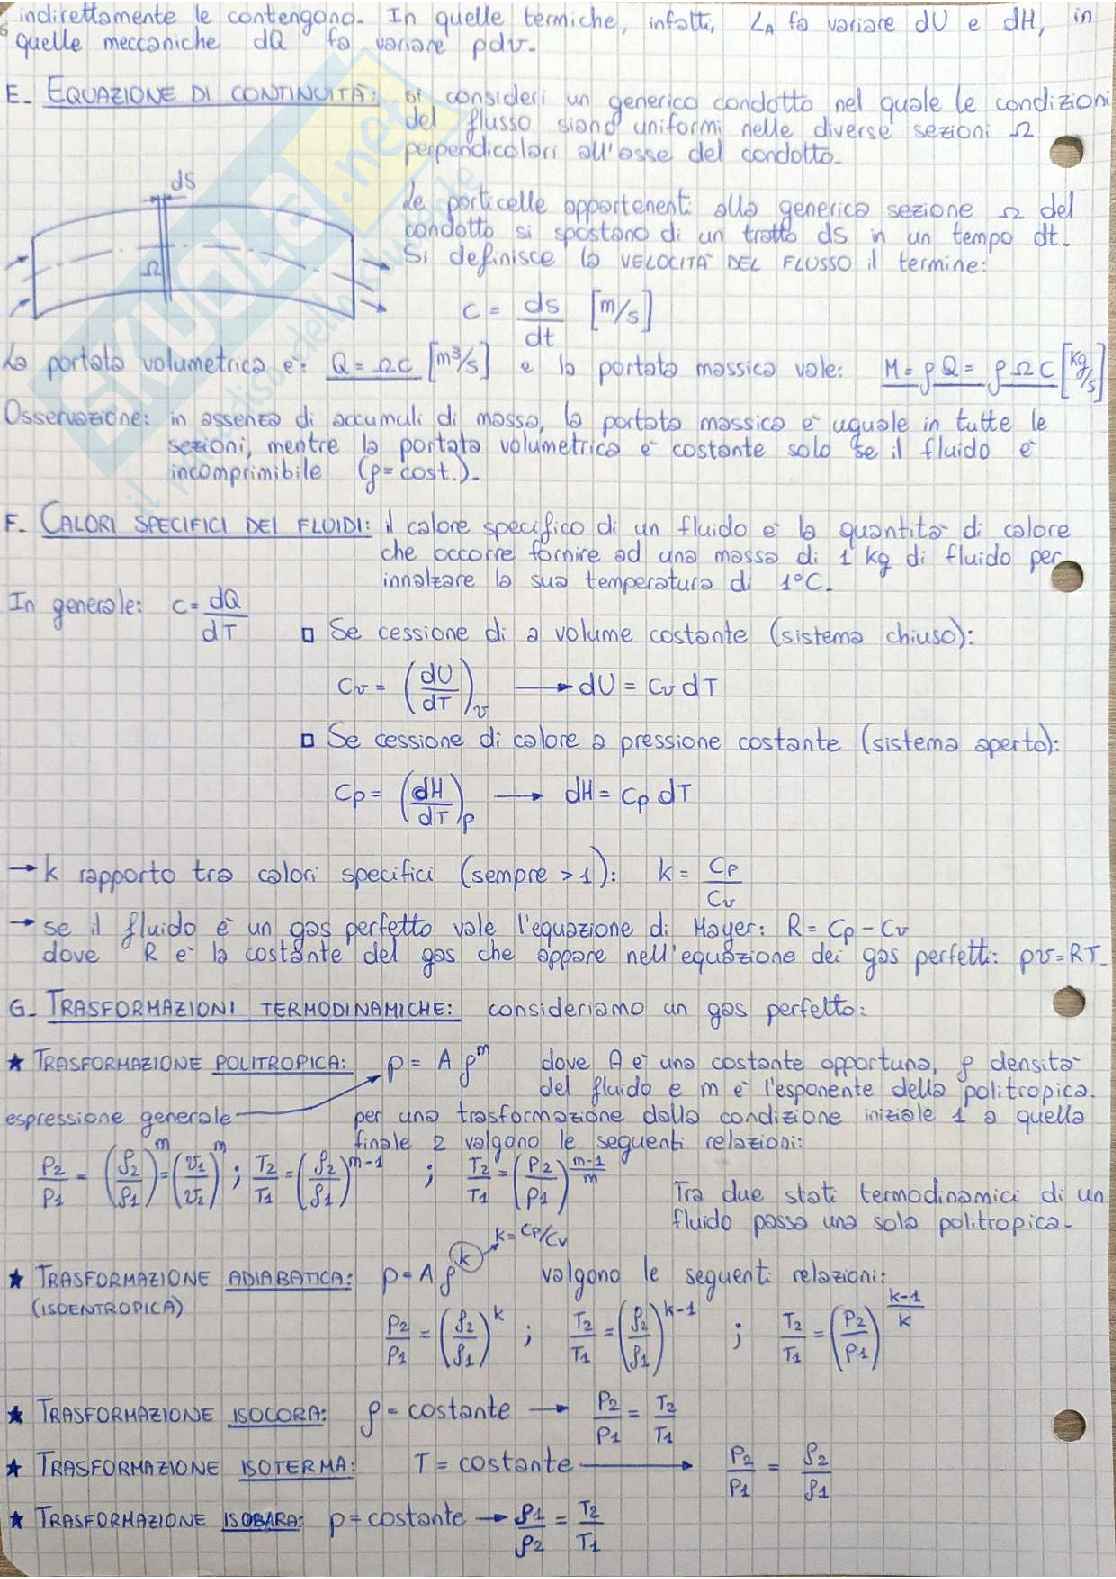 indirettamente le contengono. In quelle termiche, infatti, LA fa variare dU e dH, in
quelle meccaniche dQ fa variare pdv.
E_ EQUAZIONE DI CONTINUITÀ: si consideri un generico condotto nel quale le condizioni
del flusso siano uniformi nelle diverse sezioni Ω
perpendicolari all'asse del condotto.
dS
Ω
Le particelle appartenenti alla generica sezione Ω del
condotto si spostano di un tratto ds in un tempo dt.
Si definisce la VELOCITÀ DEL FLUSSO il termine:
c = ds/dt [m/s]
La portata volumetrica è: Q = Ωc [m³/s] e la portata massica vale: M = ρQ = ρΩc [kg/s]
Osservazione: in assenza di accumuli di massa, la portata massica è uguale in tutte le
sezioni, mentre la portata volumetrica è costante solo se il fluido è
incomprimibile (ρ=cost.).
F. CALORI SPECIFICI DEI FLUIDI: il calore specifico di un fluido è la quantità di calore
che occorre fornire ad una massa di 1 kg di fluido per
innalzare la sua temperatura di 1°C.
In generale: c = dQ/dT
□ Se cessione di a volume costante (sistema chiuso):
Cv = (dU/dT)v → dU = Cv dT
□ Se cessione di calore a pressione costante (sistema aperto):
Cp = (dH/dT)p → dH = Cp dT
→ k rapporto tra calori specifici (sempre > 1): k = Cp/Cv
→ se il fluido è un gas perfetto vale l'equazione di Mayer: R = Cp - Cv
dove R è la costante del gas che appare nell'equazione dei gas perfetti: pv = RT.
G_ TRASFORMAZIONI TERMODINAMICHE: consideriamo un gas perfetto:
★ TRASFORMAZIONE POLITROPICA: p = A ρ^m dove A è una costante opportuna, ρ densità
del fluido e m è l'esponente della politropica.
espressione generale → per una trasformazione dalla condizione iniziale 1 a quella
finale 2 valgono le seguenti relazioni:
p2/p1 = (ρ2/ρ1)^m = (v1/v2)^m ; T2/T1 = (ρ2/ρ1)^(m-1) ; T2/T1 = (p2/p1)^((m-1)/m)
Tra due stati termodinamici di un
fluido passa una sola politropica.
k = Cp/Cv
★ TRASFORMAZIONE ADIABATICA: p = A ρ^k valgono le seguenti relazioni:
(ISOENTROPICA)
p2/p1 = (ρ2/ρ1)^k ; T2/T1 = (ρ2/ρ1)^(k-1) ; T2/T1 = (p2/p1)^((k-1)/k)
★ TRASFORMAZIONE ISOCORA: ρ = costante → p2/p1 = T2/T1
★ TRASFORMAZIONE ISOTERMA: T = costante → p2/p1 = ρ2/ρ1
★ TRASFORMAZIONE ISOBARA: p = costante → ρ1/ρ2 = T2/T1